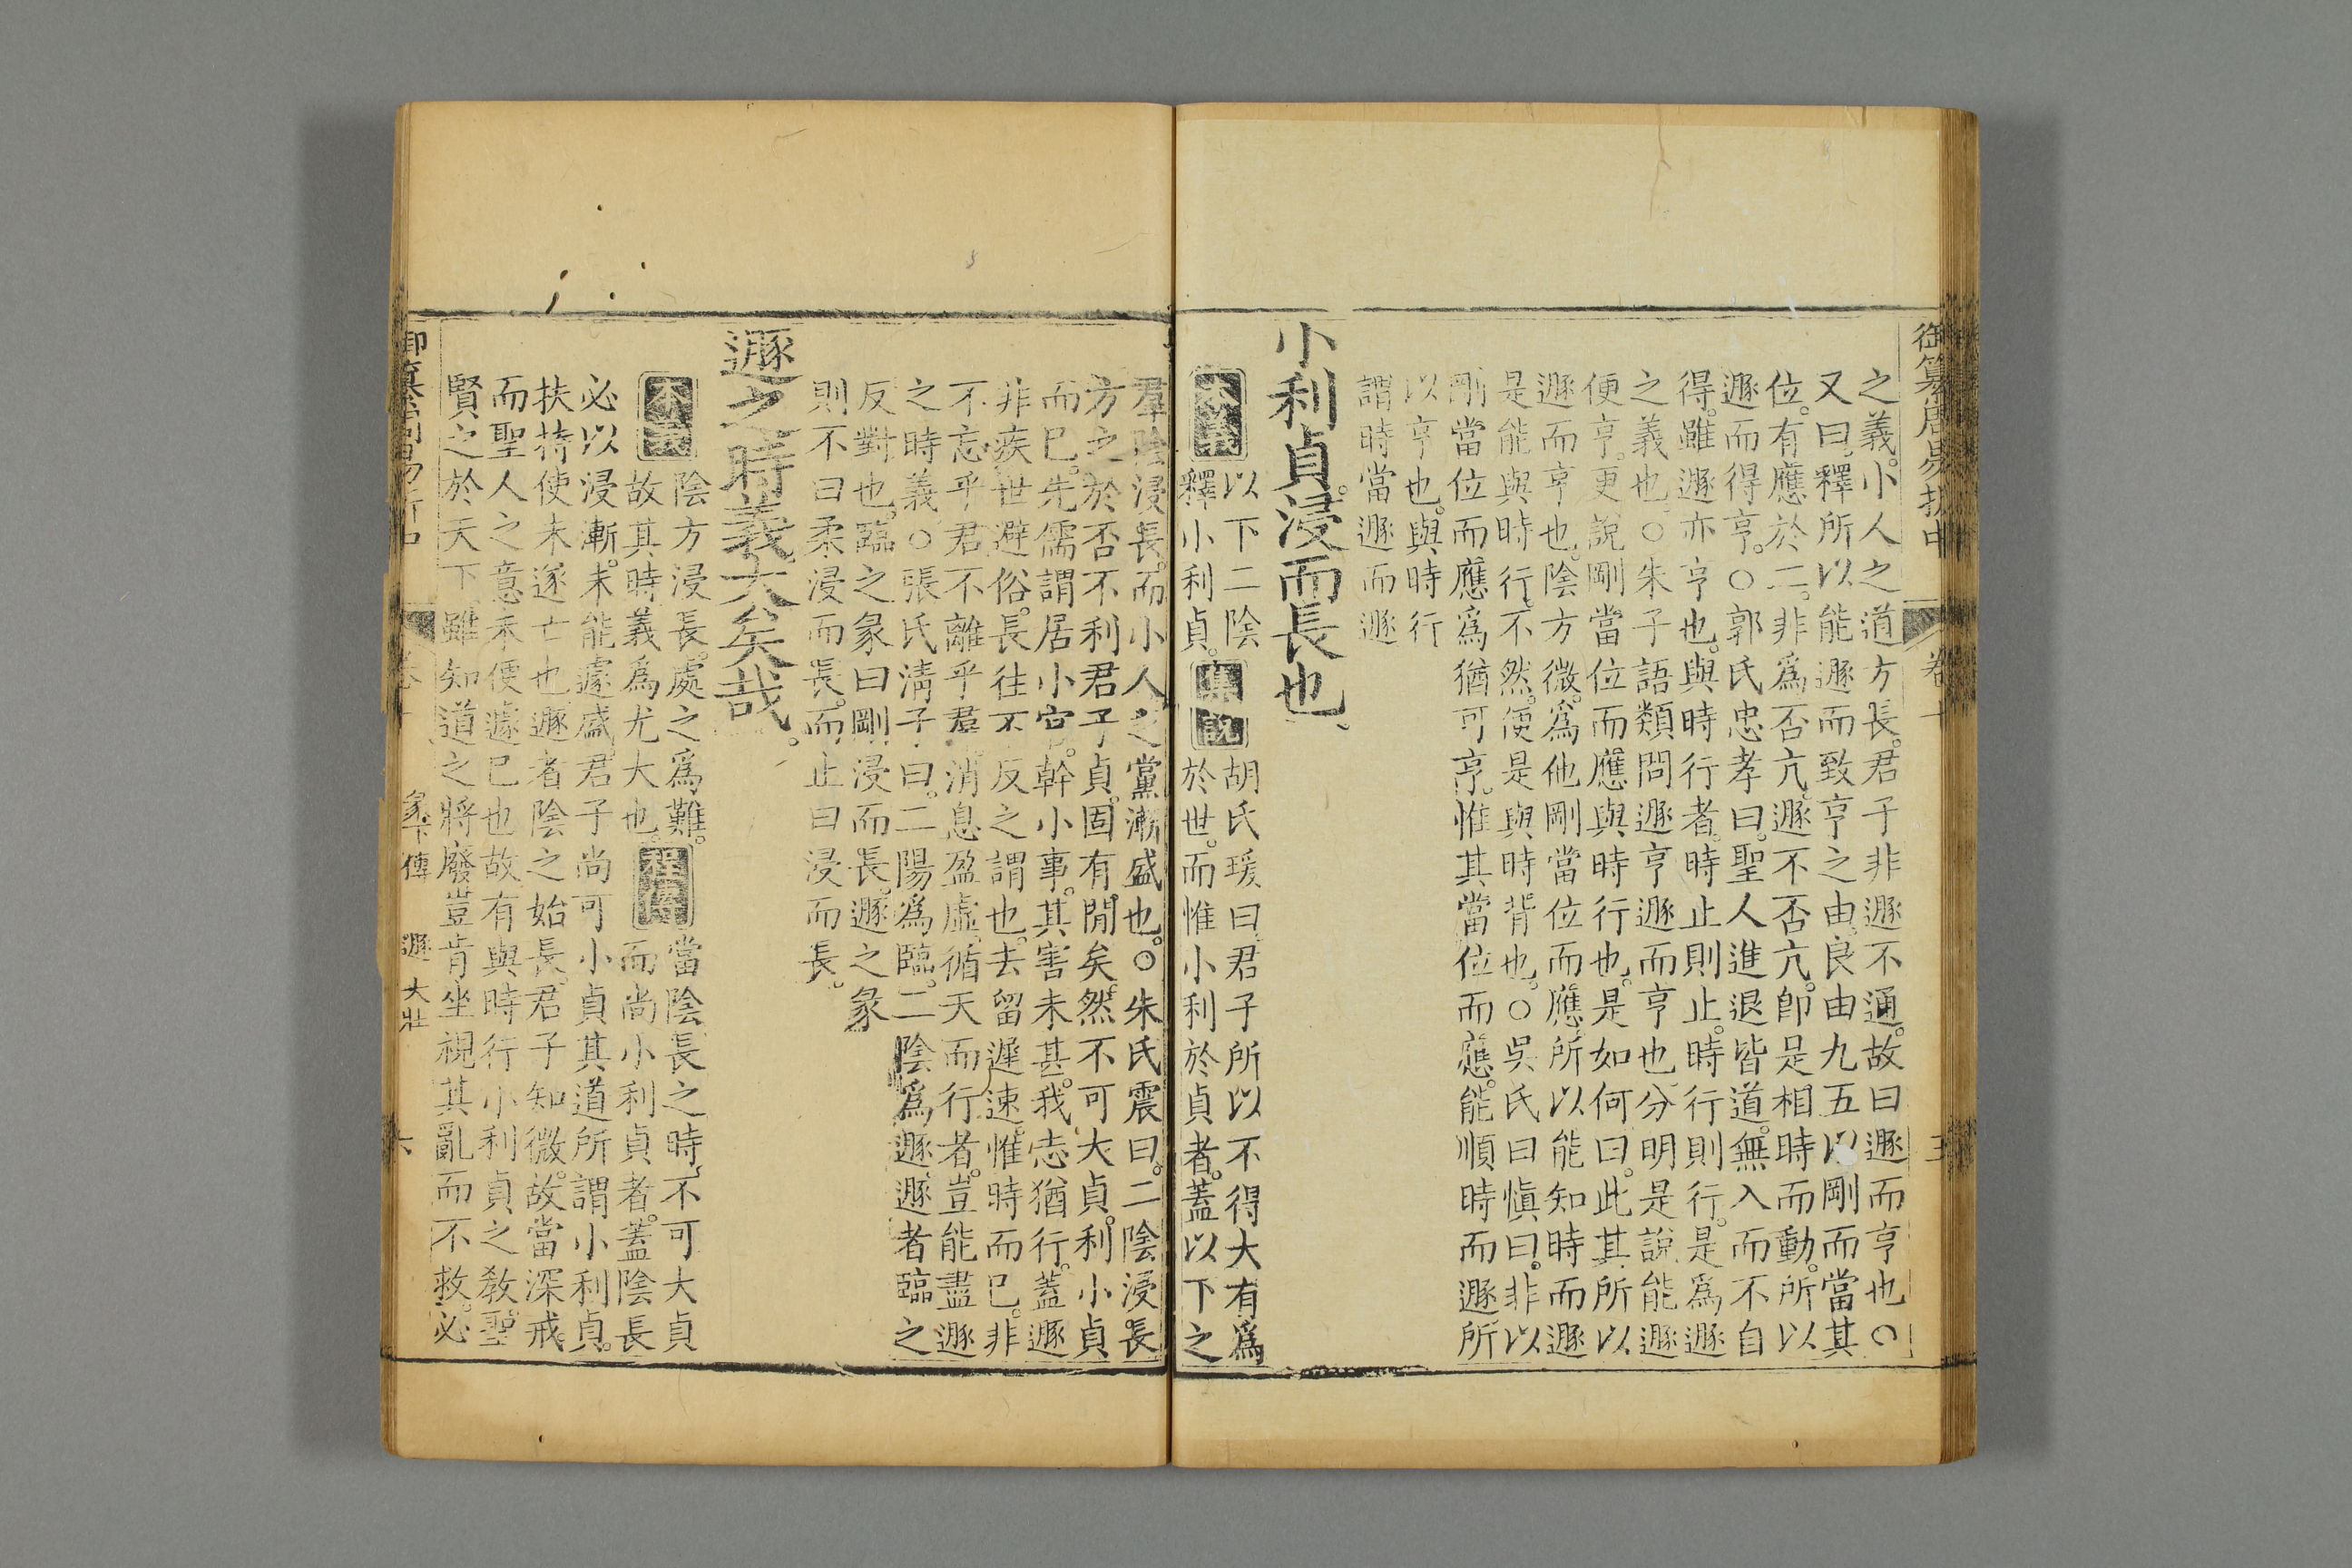 御纂周易折中 卷十
之義小人之道方長君子非遯不通故曰遯而亨也○
又曰釋所以能遯而致亨之由良由九五以剛而當其
位有應於二非爲否亢遯不否亢卽是相時而動所以
遯而得亨○郭氏忠孝曰聖人進退皆道無入而不自
得雖遯亦亨也與時行者時止則止時行則行是爲遯
之義也○朱子語類問遯亨遯而亨也分明是說能遯
便亨更說剛當位而應與時行也是如何曰此其所以
遯而亨也陰方微爲他剛當位而應所以能知時而遯
是能與時行不然便是與時背也○吳氏曰愼曰非以
剛當位而應爲猶可亨惟其當位而應能順時而遯所
以亨也與時行
謂時當遯而遯
小利貞浸而長也
本義
以下二陰
釋小利貞
集說
胡氏瑗曰君子所以不得大有爲
於世而惟小利於貞者蓋以下之
羣陰浸長而小人之黨漸盛也○朱氏震曰二陰浸長
方之於否不利君子貞固有閒矣然不可大貞利小貞
而已先儒謂居小官幹小事其害未甚我志猶行蓋遯
非疾世避俗長往不反之謂也去留遲速惟時而已非
不忘乎君不離乎羣消息盈虛循天而行者豈能盡遯
之時義○張氏清子曰二陽爲臨二陰爲遯遯者臨之
反對也臨之彖曰剛浸而長遯之彖
則不曰柔浸而長而止曰浸而長
遯之時義大矣哉
本義
陰方浸長處之爲難
故其時義爲尤大也
程傳
當陰長之時不可大貞
而尚小利貞者蓋陰長
必以浸漸未能遽盛君子尚可小貞其道所謂小利貞
扶持使未遂亡也遯者陰之始長君子知微故當深戒
而聖人之意未便遽已也故有與時行小利貞之敎聖
賢之於天下雖知道之將廢豈肯坐視其亂而不救必
御纂周易折中 彖下傳 遯 大壯 六